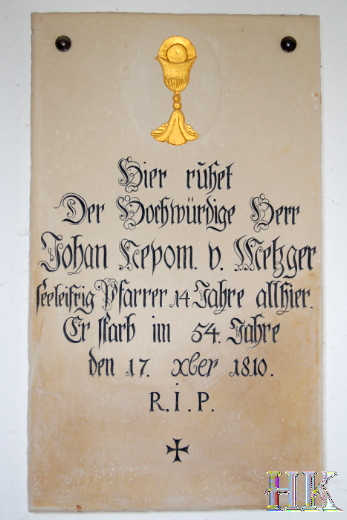 Hier ruhet
Der Hochwürdige Herr
Johan Nepom. v. Metzger
seeleifrig Pfarrer 14 Jahre allhier.
Er starb im 54. Jahre
den 17. xber 1810.
R. I. P.
HK